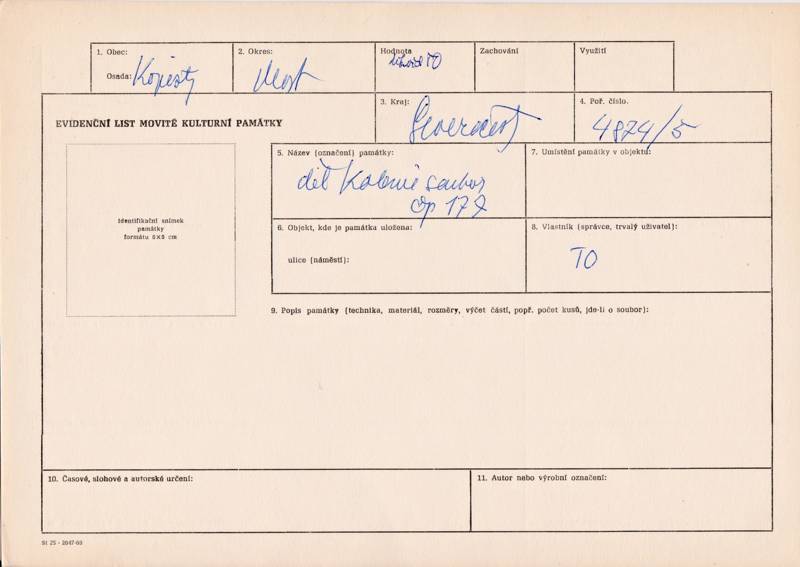 1. Obec:
Osada: Kopisty
2. Okres:
Most
Hodnota
TO
Zachování
Využití
EVIDENČNÍ LIST MOVITÉ KULTURNÍ PAMÁTKY
3. Kraj:
Severočes
4. Poř. číslo.
4824/5
Identifikační snímek
památky
formátu 6×6 cm
5. Název (označení) památky:
soubor
čp 179
7. Umístění památky v objektu:
6. Objekt, kde je památka uložena:
ulice (náměstí):
8. Vlastník (správce, trvalý uživatel):
TO
9. Popis památky (technika, materiál, rozměry, výčet částí, popř. počet kusů, jde-li o soubor):
10. Časové, slohové a autorské určení:
11. Autor nebo výrobní označení:
St 25 - 2047-69